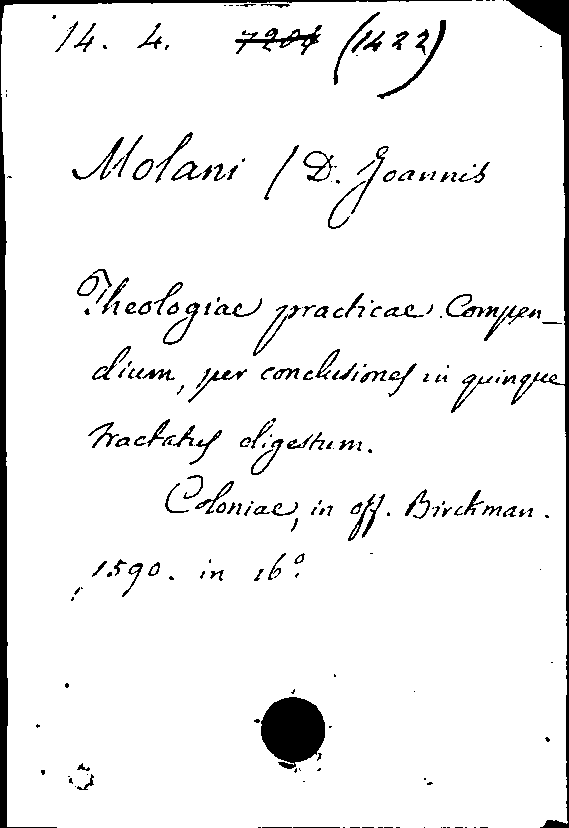 14. 4. 7204 (1422)
Molani / D. Joannis
Theologiae practicae Compen-
dium, per conclusiones in quinque
tractatus digestum.
Coloniae, in off. Birckman.
1590. in 16º.